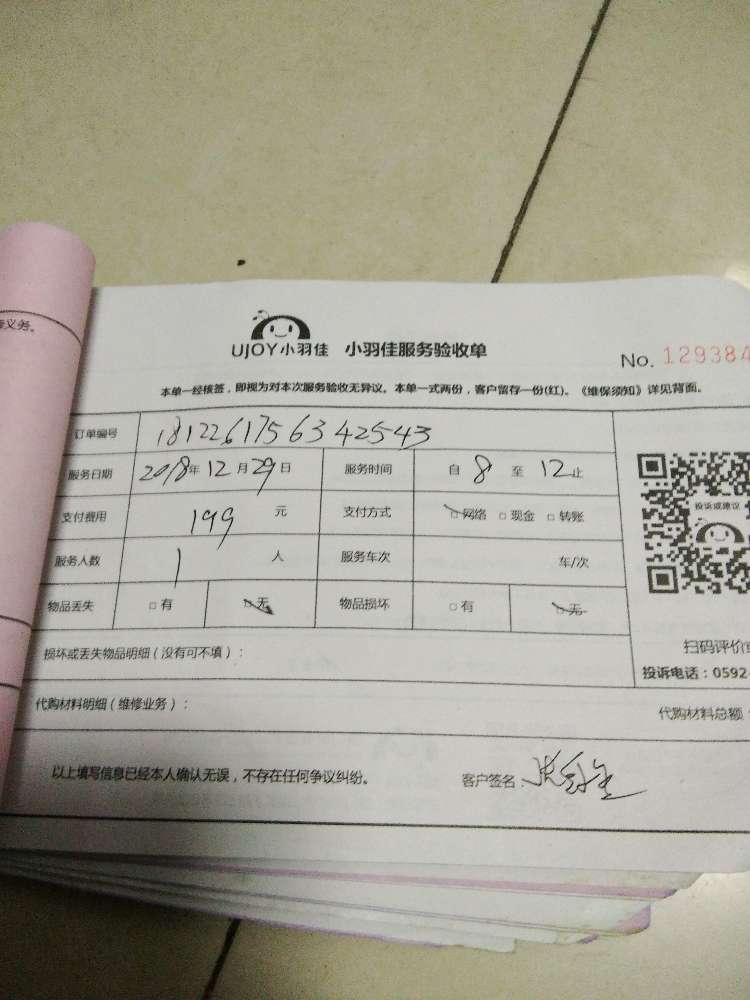 务义务。
UJOY小羽佳 小羽佳服务验收单
No. 129384
本单一经核签，即视为对本次服务验收无异议。本单一式两份，客户留存一份(红)。《维保须知》详见背面。
订单编号 1812261756342543
服务日期 2018年12月29日 服务时间 自8至12止
支付费用 199元 支付方式 □网络 □现金 □转账
服务人数 1人 服务车次 车/次
物品丢失 □有 □无 物品损坏 □有 □无
投诉或建议
扫码评价或
损坏或丢失物品明细（没有可不填）：
投诉电话：0592-
代购材料明细（维修业务）：
代购材料总额：
以上填写信息已经本人确认无误，不存在任何争议纠纷。
客户签名：